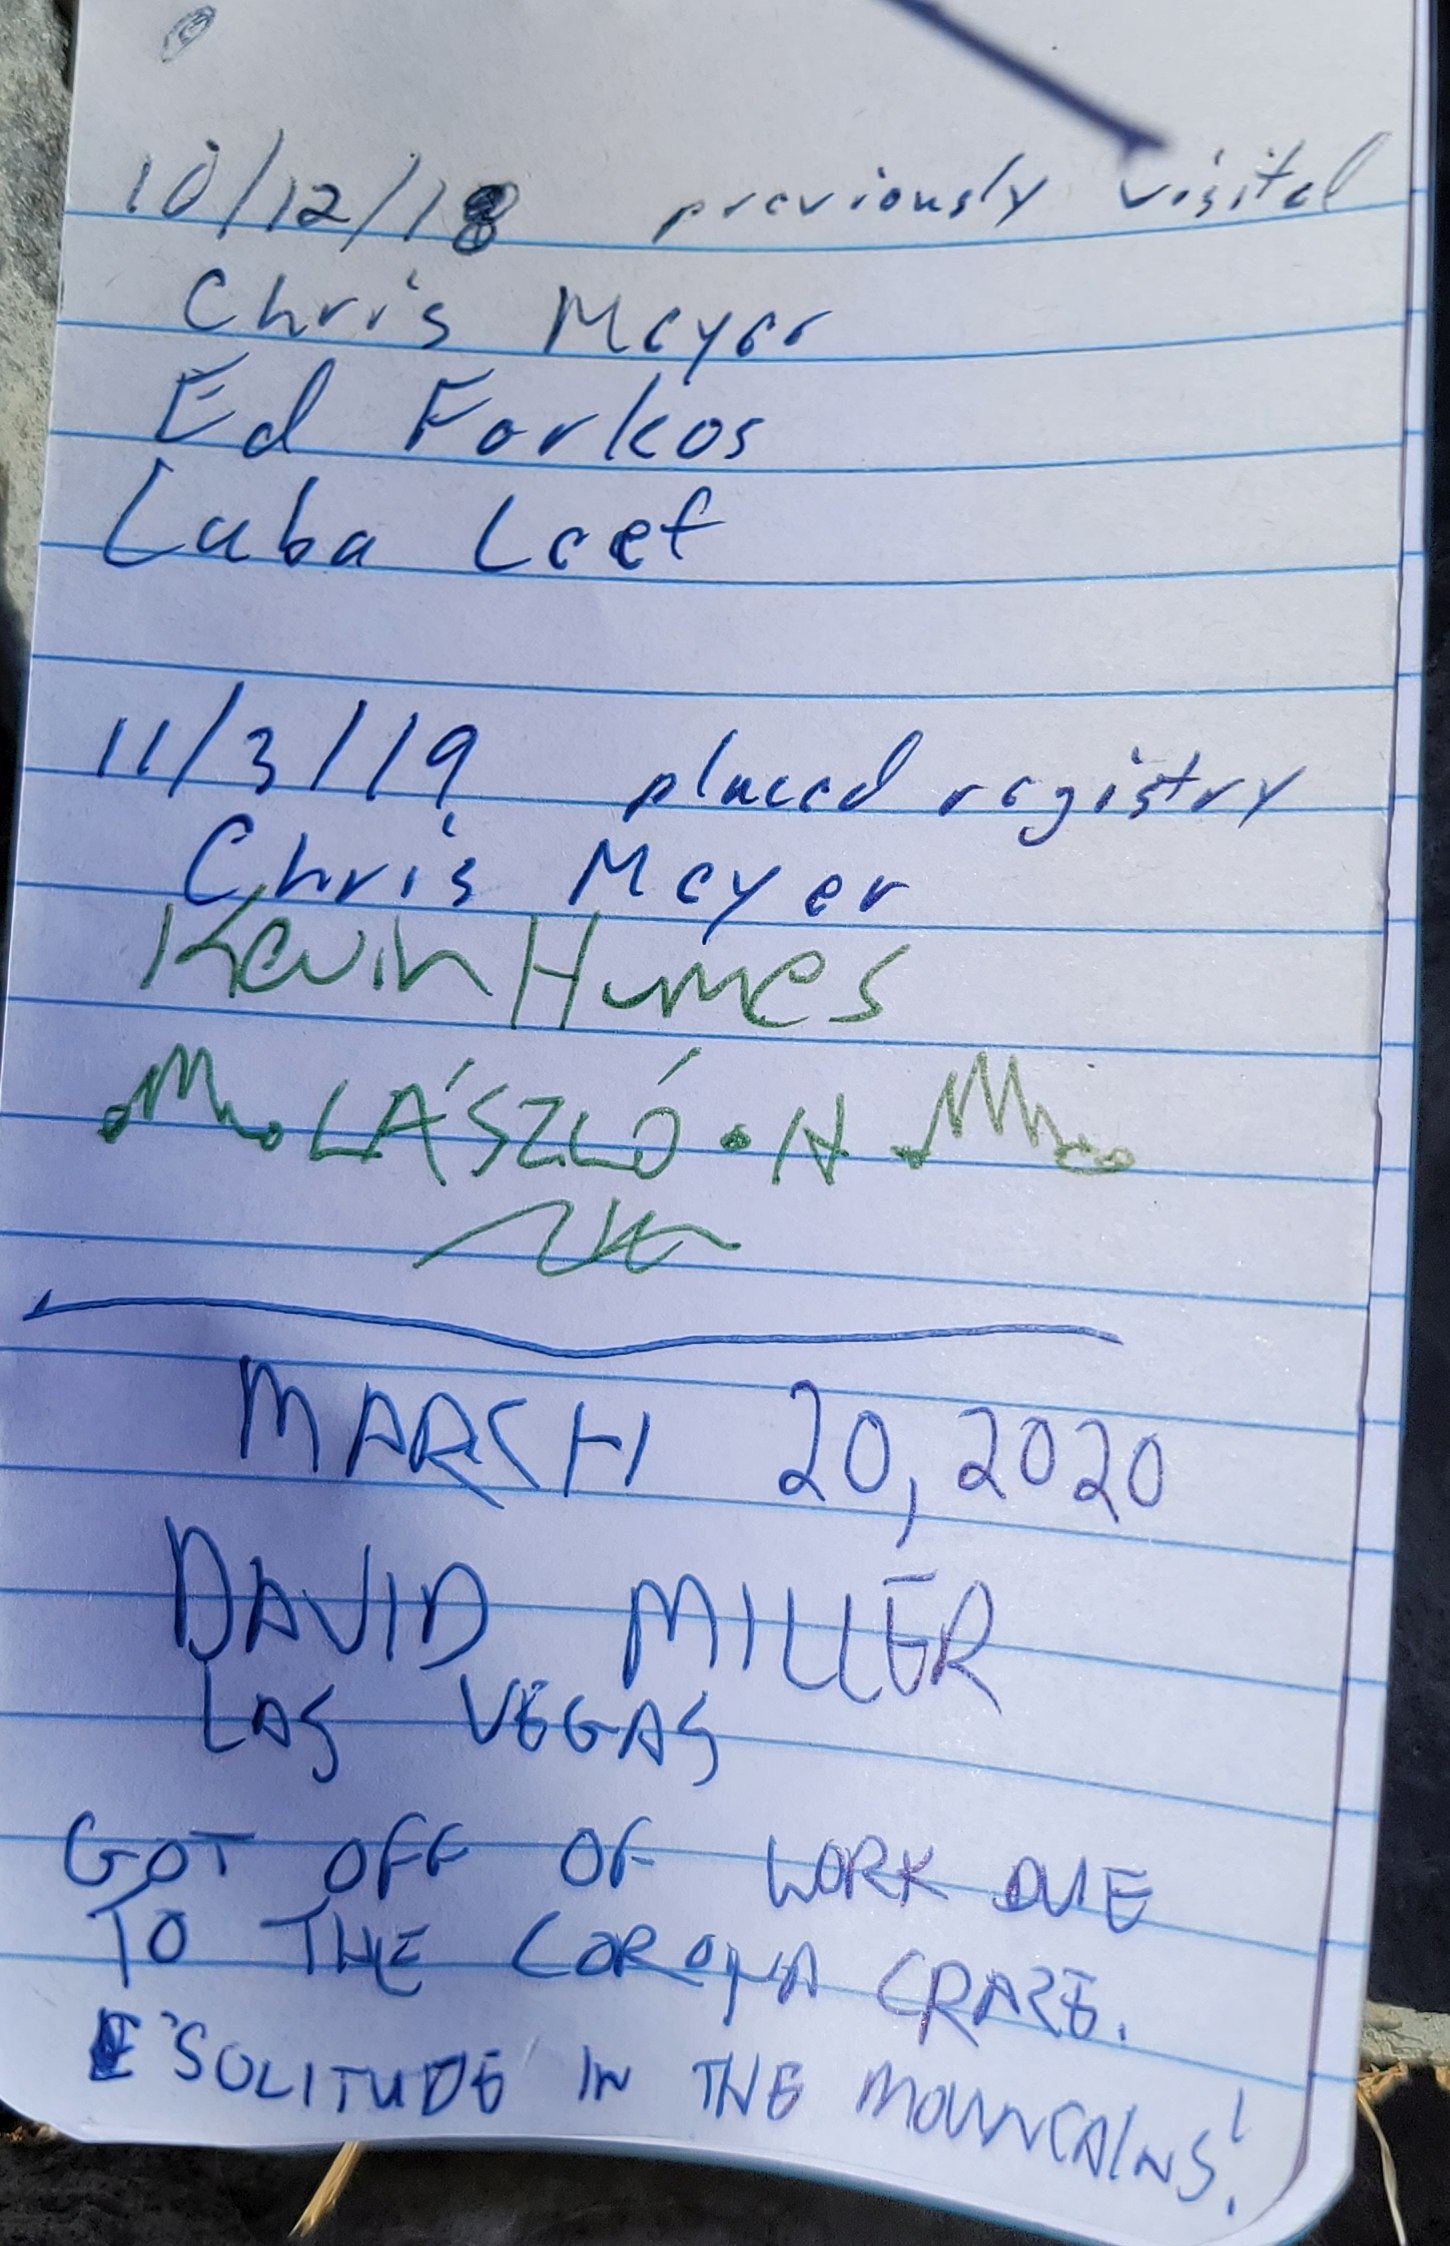 10/12/18 previously visited
Chris Meyer
Ed Forkos
Luba Leef
11/3/19 placed registry
Chris Meyer
Kevin Humes
LÁSZLÓ • H
MARCH 20, 2020
DAVID MILLER
LAS VEGAS
GOT OFF OF WORK DUE
TO THE CORONA CRAZE.
"SOLITUDE IN THE MOUNTAINS!